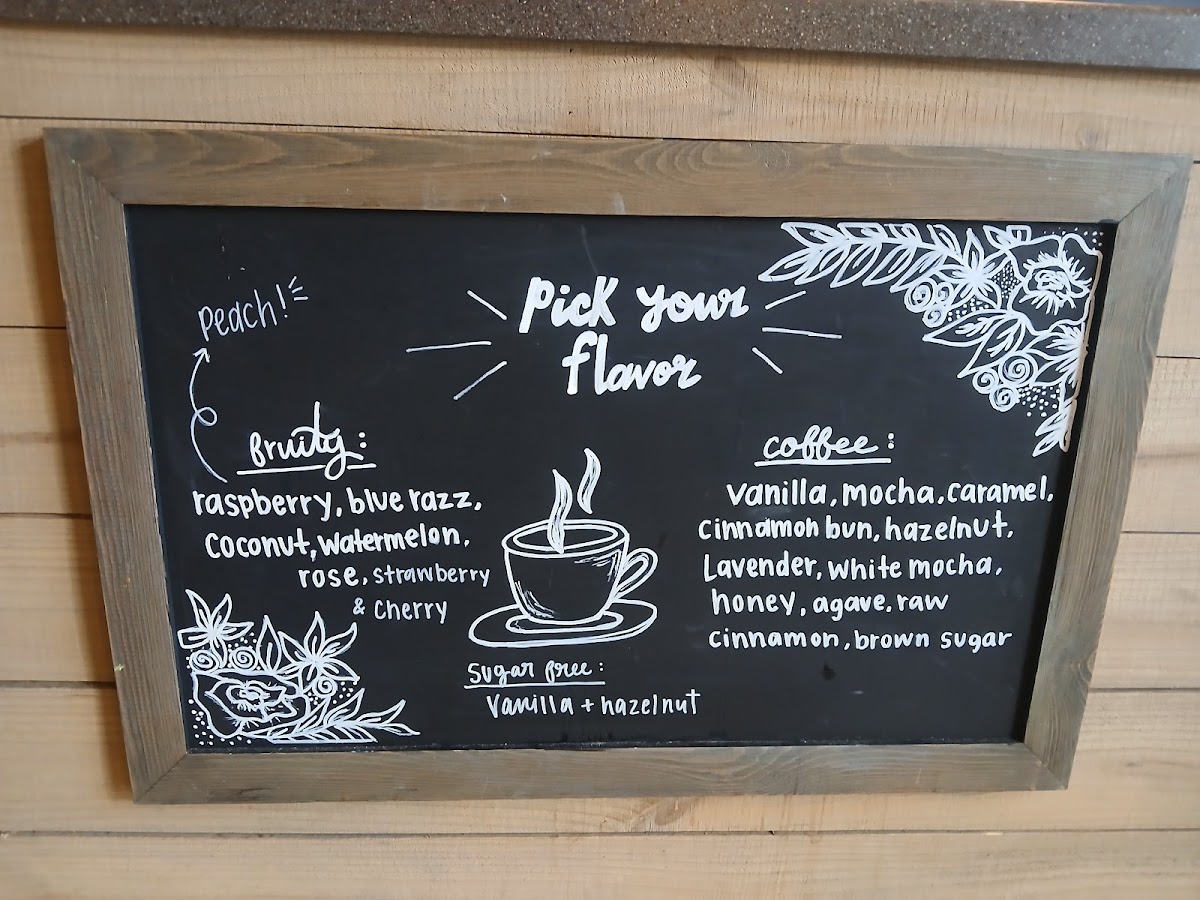 Pick your
flavor
Peach!
fruity:
raspberry, blue razz,
coconut, watermelon,
rose, strawberry
& cherry
coffee:
vanilla, mocha, caramel,
cinnamon bun, hazelnut,
Lavender, white mocha,
honey, agave, raw
cinnamon, brown sugar
Sugar free:
Vanilla + hazelnut